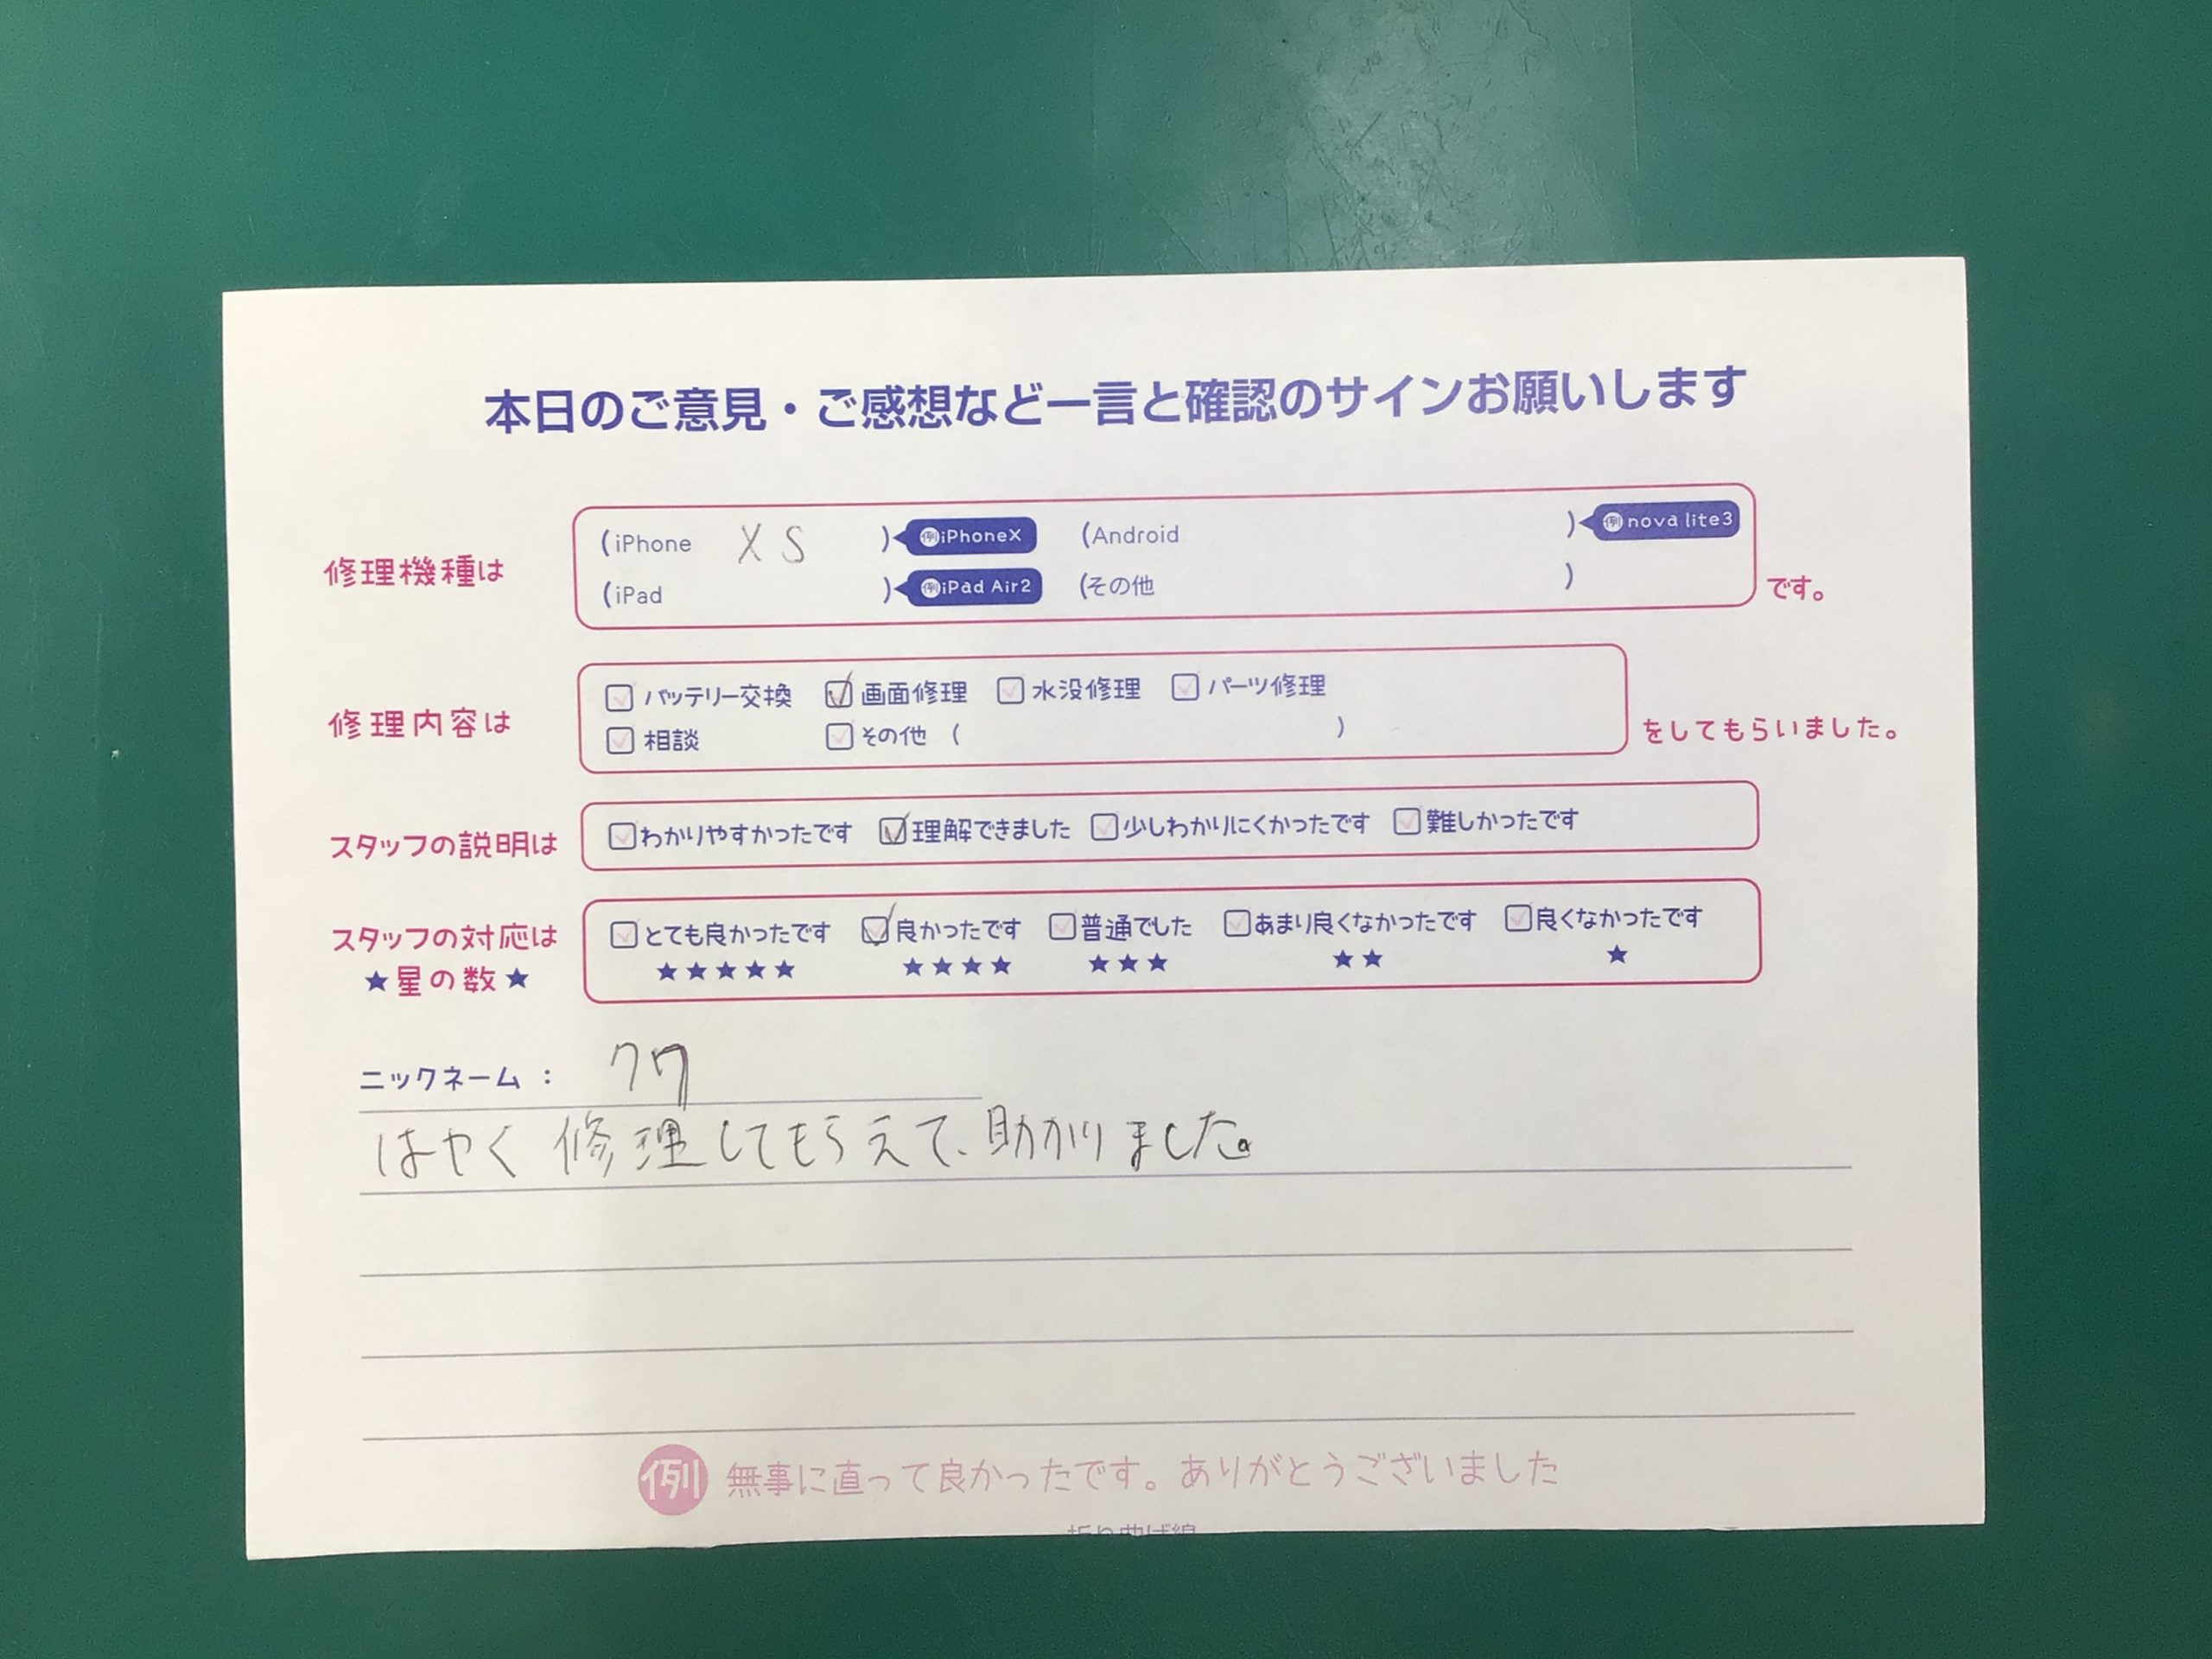 本日のご意見・ご感想など一言と確認のサインお願いします
修理機種は (iPhone XS ) 例iPhoneX (Android ) 例nova lite3
(iPad ) 例iPad Air2 (その他 ) です。
修理内容は バッテリー交換 画面修理 水没修理 パーツ修理
相談 その他 ( ) をしてもらいました。
スタッフの説明は わかりやすかったです 理解できました 少しわかりにくかったです 難しかったです
スタッフの対応は とても良かったです 良かったです 普通でした あまり良くなかったです 良くなかったです
★星の数★ ★★★★★ ★★★★ ★★★ ★★ ★
ニックネーム：
はやく修理してもらえて、助かりました。
例 無事に直って良かったです。ありがとうございました
折り曲げ線